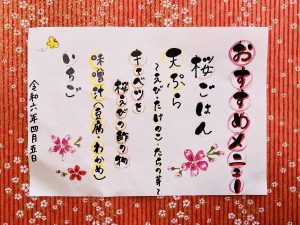 おすすめメニュー
桜ごはん
天ぷら
~えび・たけのこ・たらの芽~
キャベツと
桜えびの酢の物
味噌汁(豆腐・わかめ)
いちご
令和六年四月五日